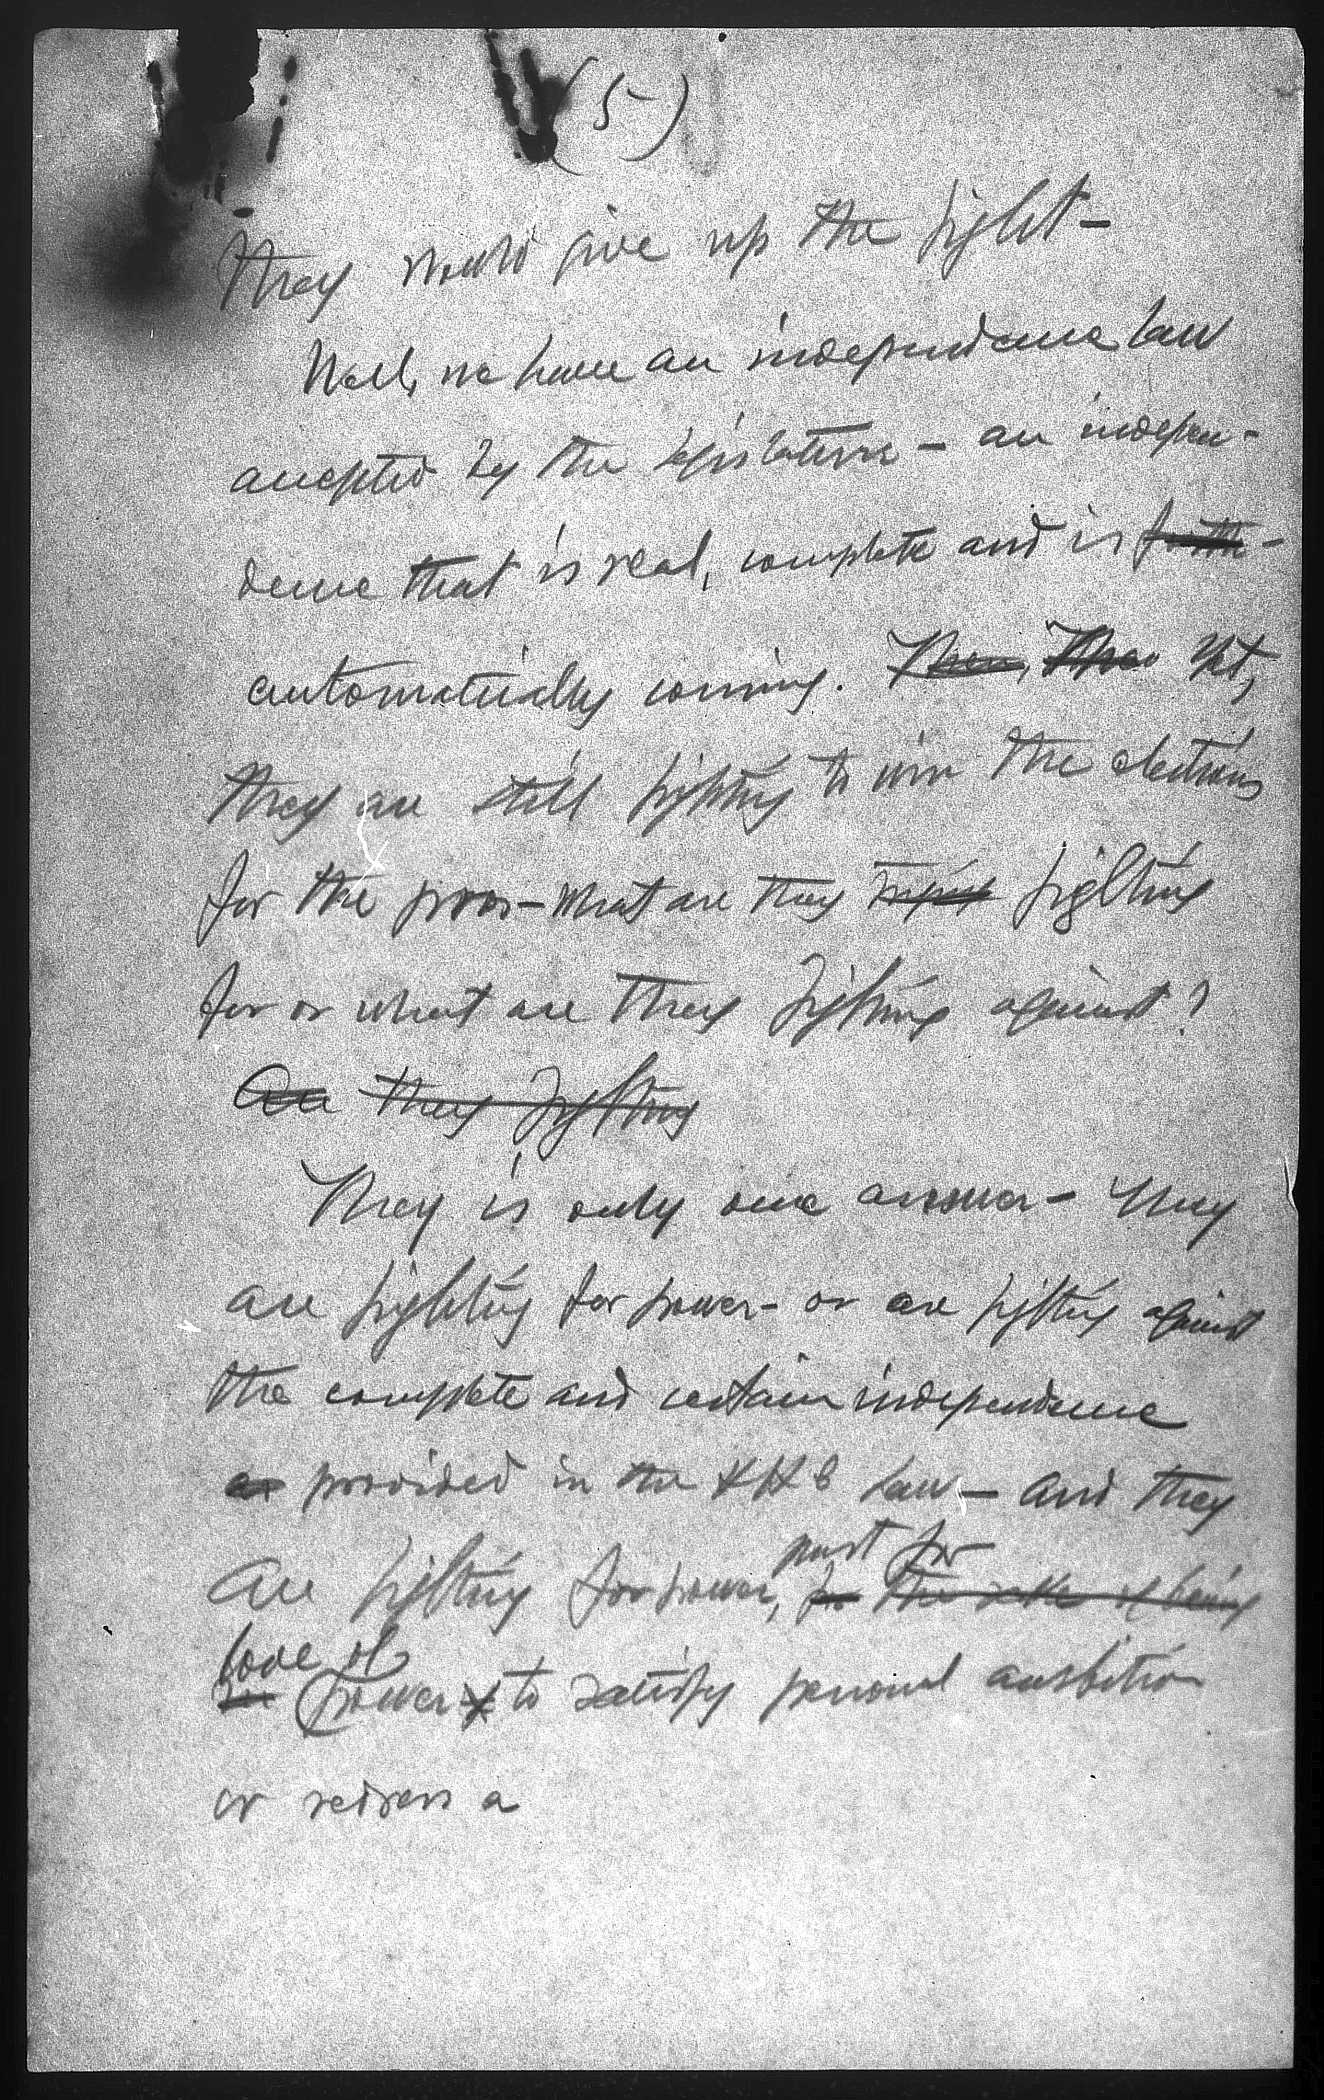 (5)
They would give up the fight -
Well, we have an independence law
accepted by the legislature - an indepen-
dence that is real, complete and is forth-
automatically coming. Then, Then Yet,
they are still fighting to win the elections
for the poor - what are they fighting
for or what are they fighting against?
Are they fighting
They is only one answer - They
are fighting for power - or are fighting against
the complete and certain independence
as provided in the HHC Law - and they
must for
are fighting for power, for the sake of being
love of
power to satisfy personal ambition
or redress a